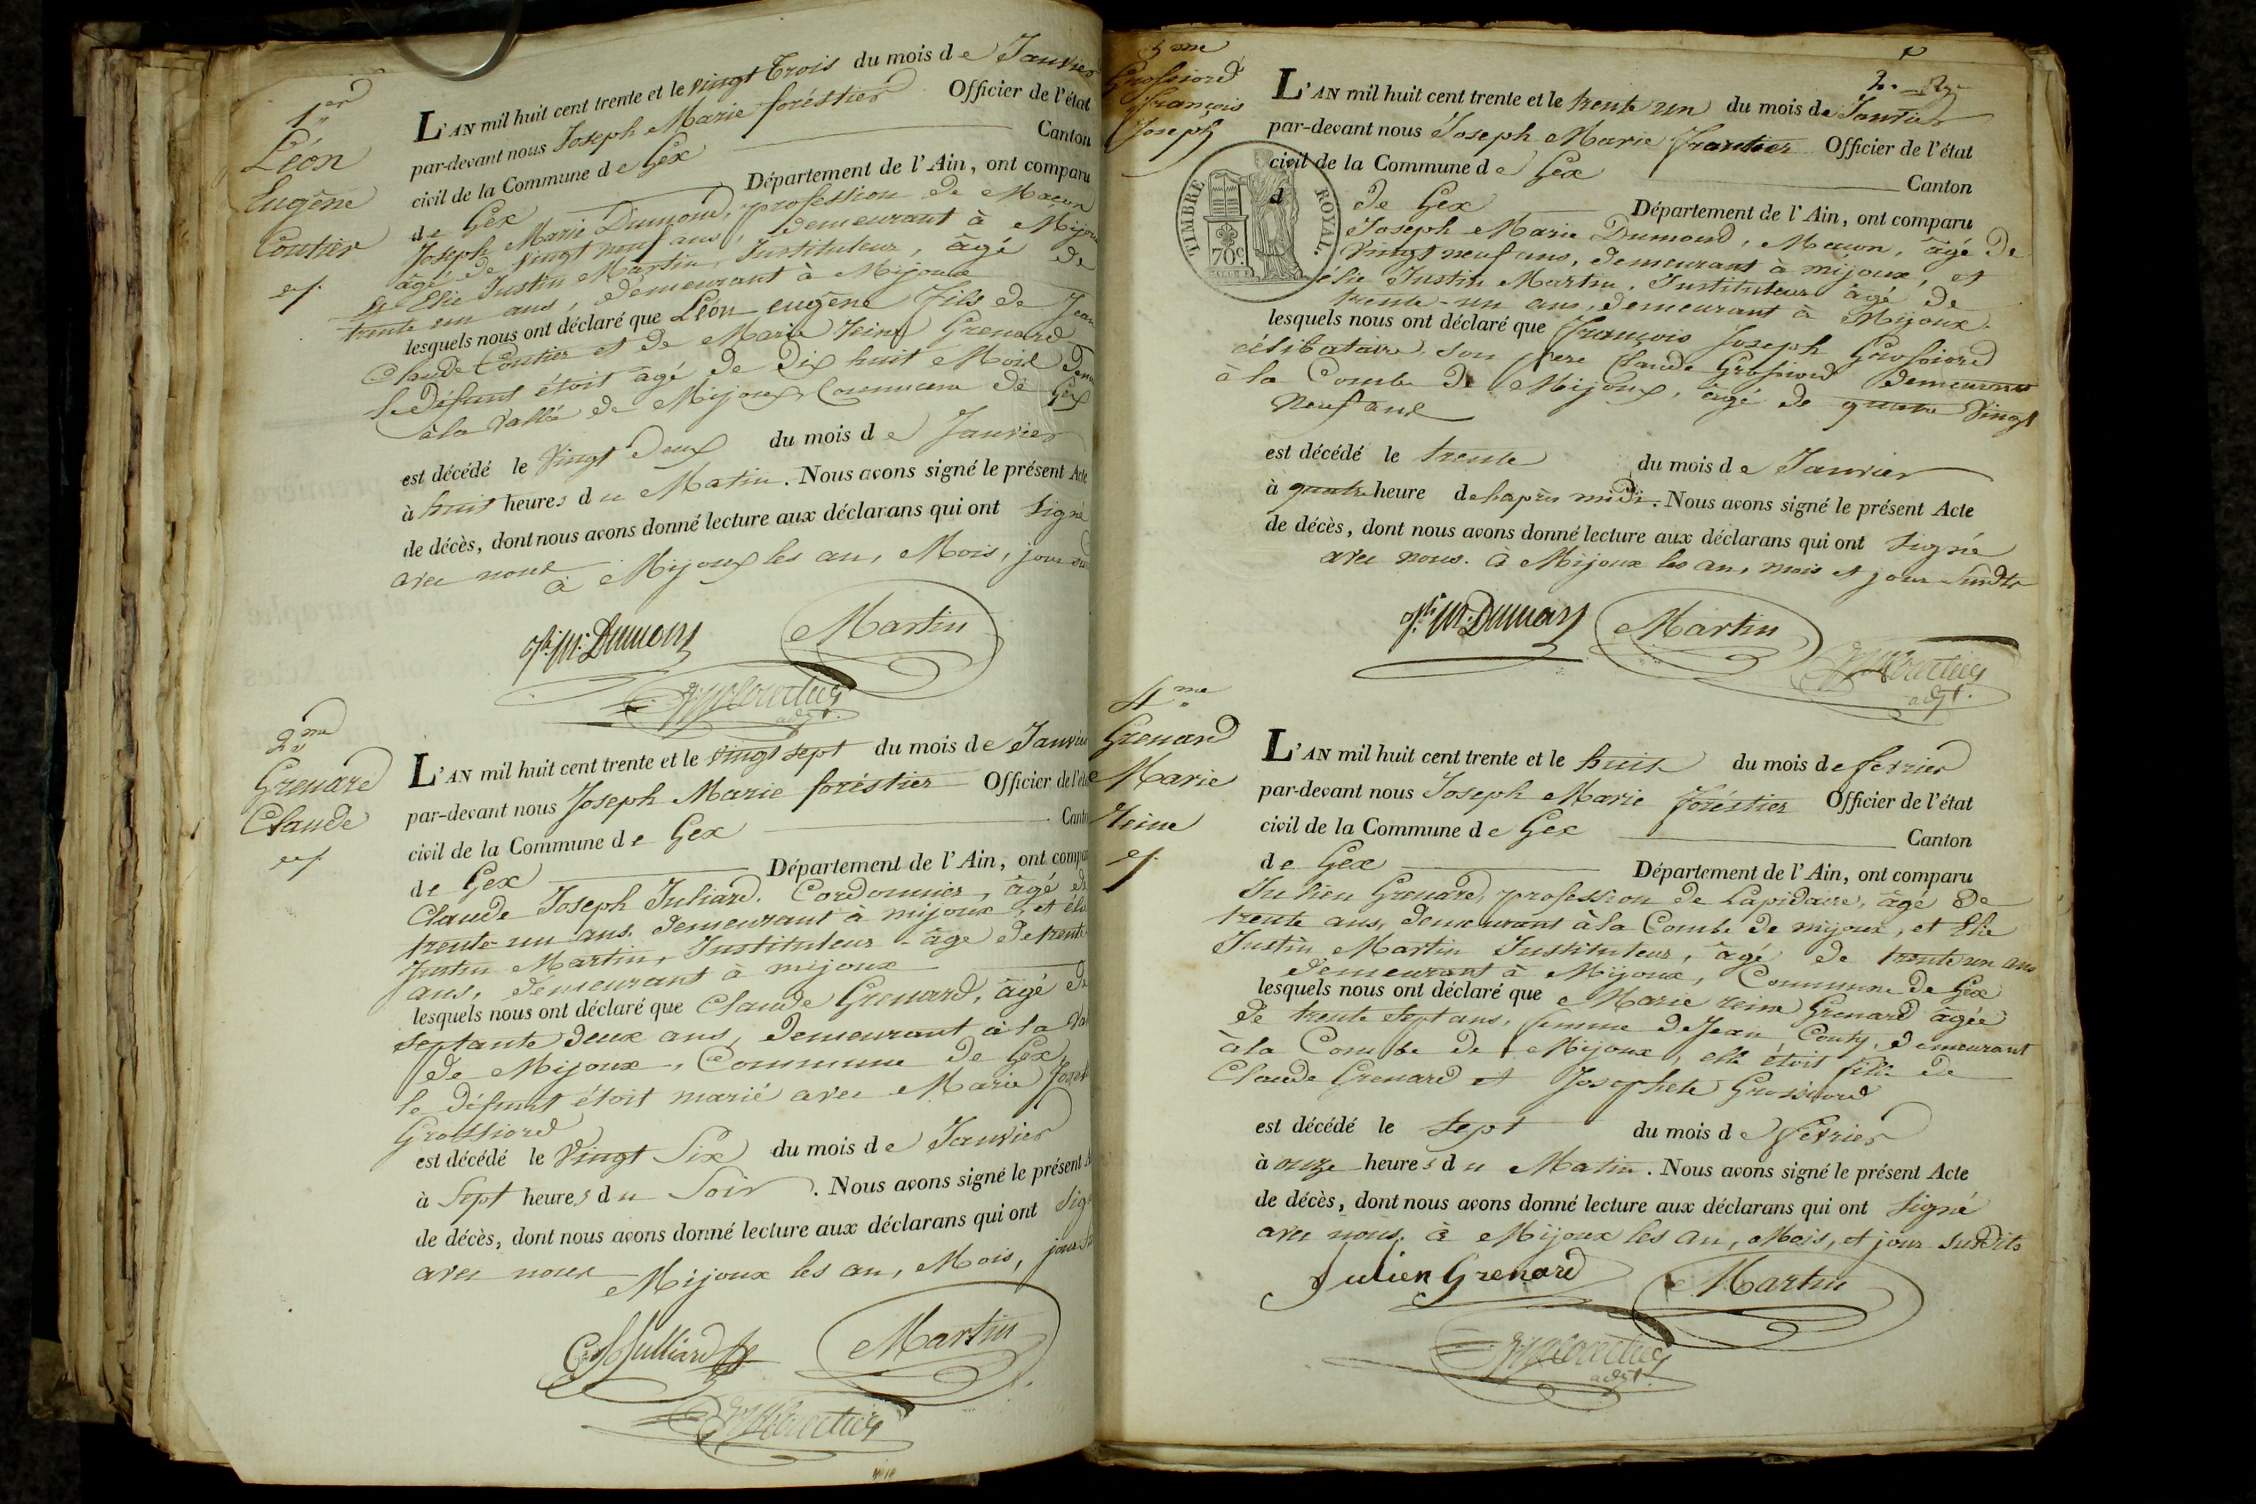 1er
Léon
Eugène
Coutier
L'AN mil huit cent trente et le vingt trois du mois de Janvier
par-devant nous Joseph Marie foréstier Officier de l'état
civil de la Commune de Gex Canton
de Gex Département de l'Ain, ont comparu
Joseph Marie Dumond, profession de Macon
âgé de vingt neuf ans, demeurant à Mijoux
et Elie Justin Martin, Instituteur, âgé de
trente un ans, demeurant à Mijoux
lesquels nous ont déclaré que Léon eugène fils de Jean
Claude Coutier et de Marie reine Grenard
le défunt étoit âgé de Dix huit Mois
à la Vallé de Mijoux, Commune de Gex
est décédé le Vingt Deux du mois de Janvier
à huit heures du Matin. Nous avons signé le présent Acte
de décès, dont nous avons donné lecture aux déclarans qui ont signé
avec nous à Mijoux les an, Mois, jour
Jh. M. Dumond Martin
adjt.
2me
Grenard
Claude
L'AN mil huit cent trente et le vingt sept du mois de Janvier
par-devant nous Joseph Marie foréstier Officier de l'état
civil de la Commune de Gex Canton
de Gex Département de l'Ain, ont comparu
Claude Joseph Juliard, Cordonnier, âgé de
trente-un ans, demeurant à mijoux, et élie
Justin Martin, Instituteur âgé de trente
ans, demeurant à mijoux
lesquels nous ont déclaré que Claude Grenard, âgé de
septante deux ans, demeurant à la Val
de Mijoux, Commune de Gex
le défunt étoit marié avec Marie Joseph
Grossiord
est décédé le Vingt Six du mois de Janvier
à Sept heures du Soir. Nous avons signé le présent A
de décès, dont nous avons donné lecture aux déclarans qui ont sig
avec nous Mijoux les an, Mois, jour
Julliard Martin
3me
Grossiord
françois
Joseph
L'AN mil huit cent trente et le trente un du mois de Janvier
par-devant nous Joseph Marie Officier de l'état
civil de la Commune de Gex Canton
de Gex Département de l'Ain, ont comparu
TIMBRE ROYAL.
70c.
Joseph Marie Dumond, Macon, âgé de
Vingt neuf ans, demeurant à mijoux, et
élie Justin Martin, Instituteur âgé de
trente-un ans, demeurant à Mijoux.
lesquels nous ont déclaré que François Joseph Grossiord
célibataire, son frere Claude Grossiord demeurant
à la Combe de Mijoux, âgé de quatre Vingt
Neuf ans
est décédé le trente du mois de Janvier
à quatre heure de l'après midi. Nous avons signé le présent Acte
de décès, dont nous avons donné lecture aux déclarans qui ont signé
avec nous. à Mijoux les an, mois et jour susdits
Jh. M. Dumond Martin
adjt.
4me
Grenard
Marie
reine
L'AN mil huit cent trente et le huit du mois de fevrier
par-devant nous Joseph Marie foréstier Officier de l'état
civil de la Commune de Gex Canton
de Gex Département de l'Ain, ont comparu
Julien Grenard, profession de Lapidaire, âgé de
trente ans, demeurant à la Combe de mijoux, et Elie
Justin Martin Instituteur, âgé de trente un ans
demeurant à Mijoux, Commune de Gex
lesquels nous ont déclaré que Marie reine Grenard âgée
de trente sept ans, femme de Jean Couty, demeurant
à la Combe de Mijoux, elle étoit fille de
Claude Grenard et Josephete Grossiord
est décédé le sept du mois de fevrier
à onze heures du Matin. Nous avons signé le présent Acte
de décès, dont nous avons donné lecture aux déclarans qui ont signé
avec nous, à Mijoux les an, Mois, et jour susdits
Julien Grenard Martin
adjt.